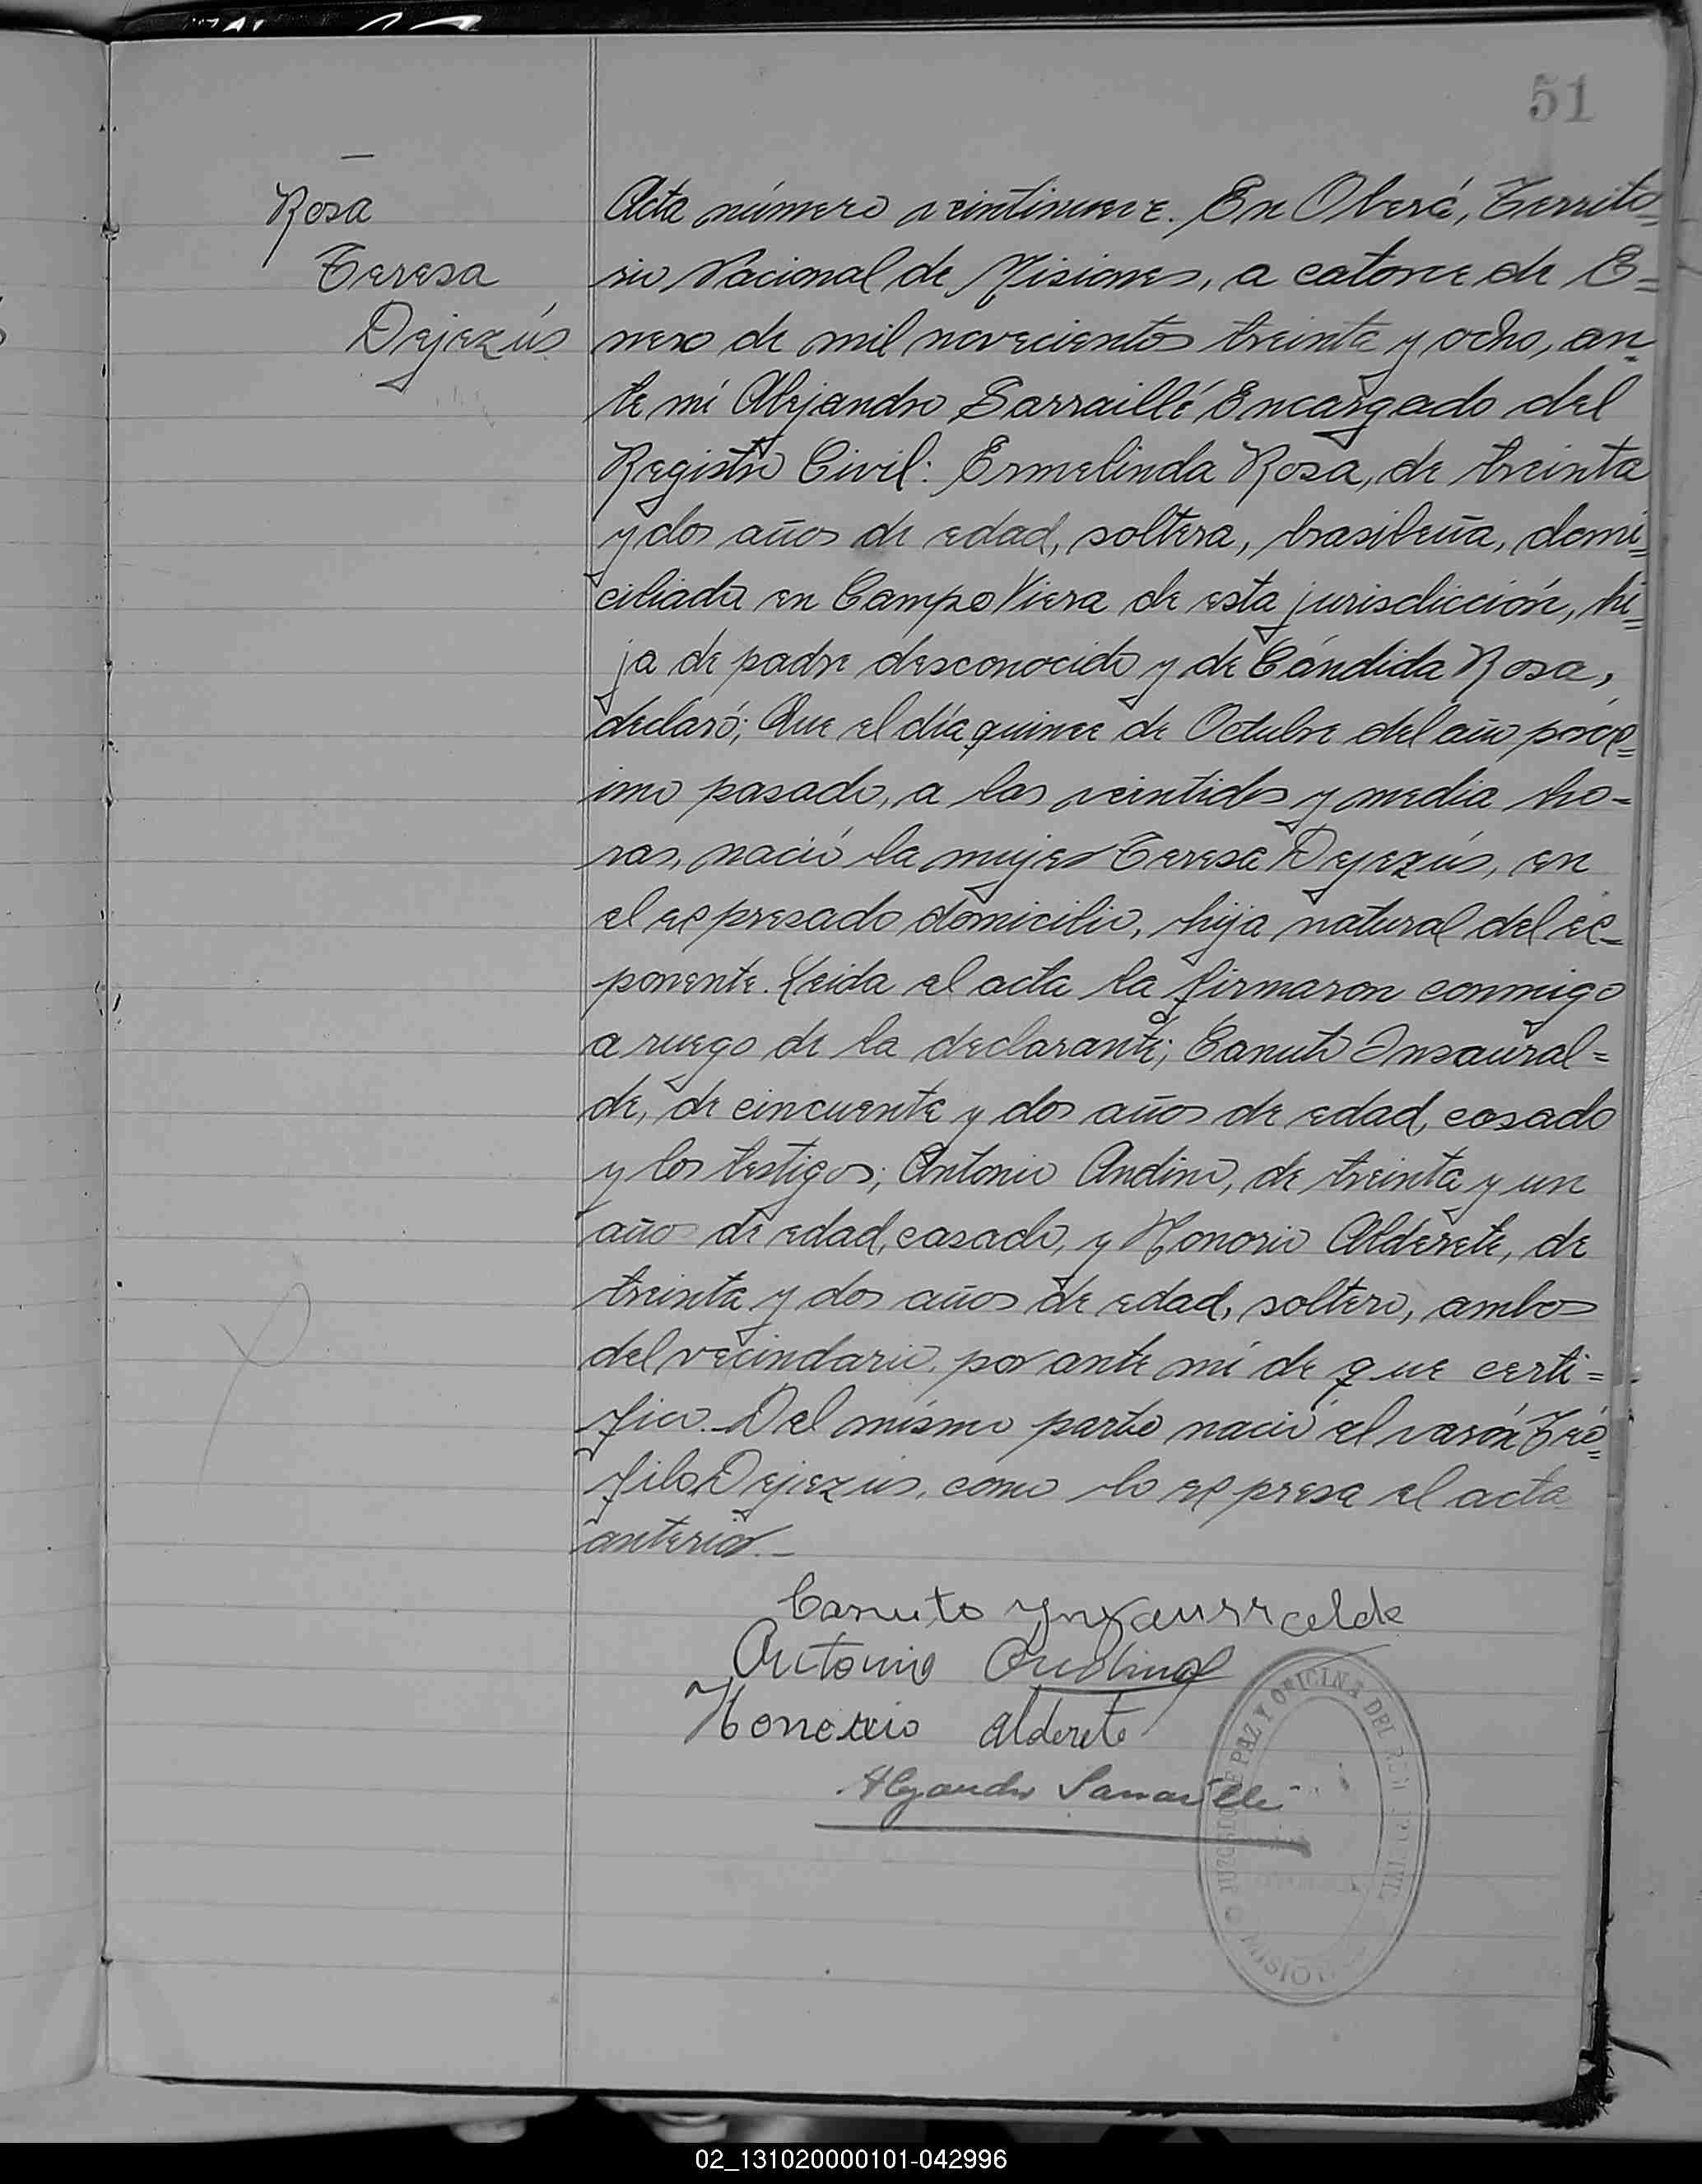 51
Rosa
Teresa
Dejezús
Acta número veintinueve. En Oberá, Territo=
rio Nacional de Misiones, a catorce de E=
nero de mil novecientos treinta y ocho, an=
te mí Alejandro Sarraillé Encargado del
Registro Civil: Ermelinda Rosa, de treinta
y dos años de edad, soltera, brasileña, domi=
ciliada en Campo Viera de esta jurisdicción, hi=
ja de padre desconocido y de Cándida Rosa,
declaró; Que el día quince de Octubre del año próx=
imo pasado, a las veintidos y media ho-
ras, nació la mujer Teresa Dejezús, en
el expresado domicilio, hija natural del ex-
ponente. Leida el acta la firmaron conmigo
a ruego de la declarante; Canuto Insaural=
de, de cincuenta y dos años de edad, casado
y los testigos; Antonio Andino, de treinta y un
año de edad, casado, y Honorio Alderete, de
treinta y dos años de edad, soltero, ambos
del vecindario, por ante mí de que certi=
fico. Del mismo parto nació el varón Teó=
filo Dejezús, como lo expresa el acta
anterior.-
Canuto Ynsaurralde
Antonio Andino
Honorio Alderete
Alejandro Sarraillé
JUZGADO DE PAZ Y OFICINA DEL REG CIVIL
02_131020000101-042996